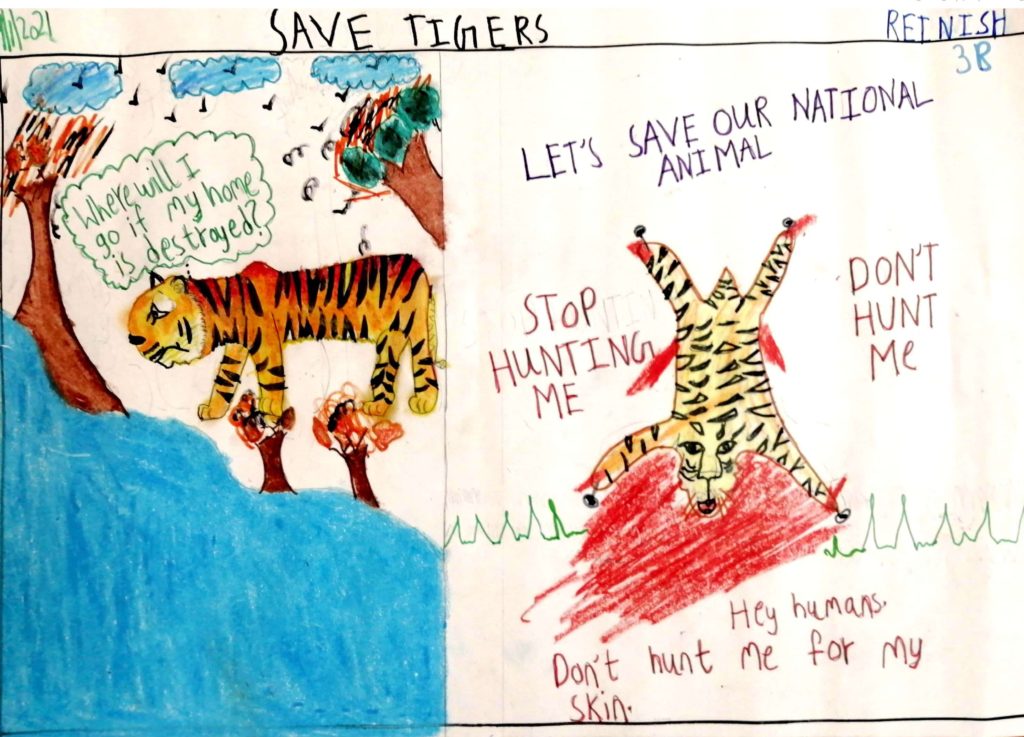 /2021
SAVE TIGERS
REINISH
3B
Where will I
go if my home
is destrayed?
LET'S SAVE OUR NATIONAL
ANIMAL
STOP
HUNTING
ME
DON'T
HUNT
Me
Hey humans.
Don't hunt me for my
skin.